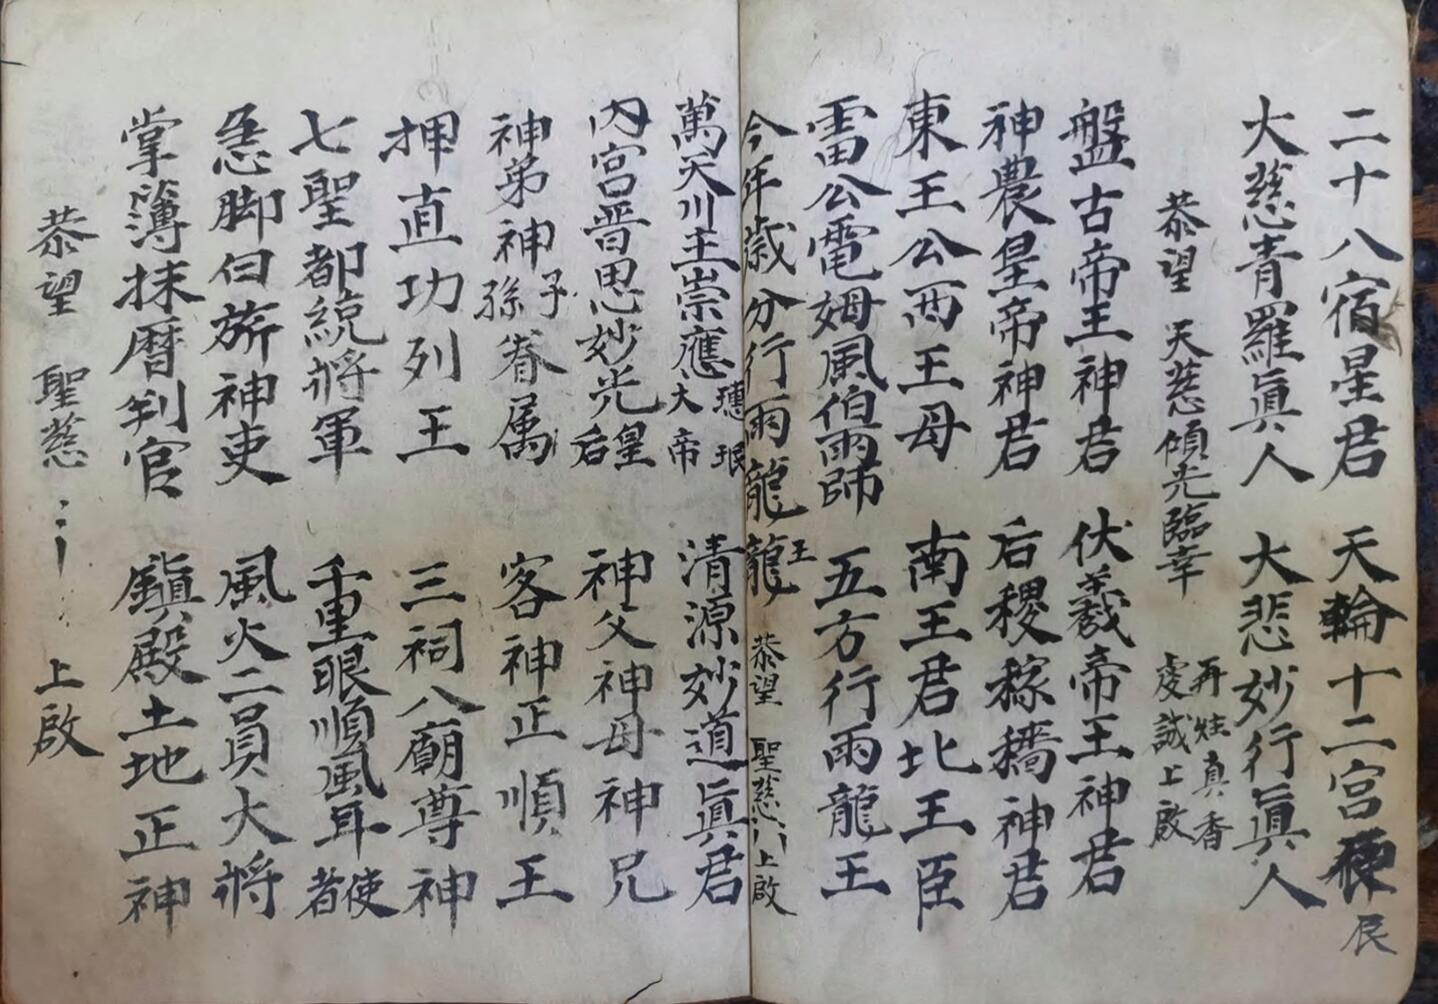 二十八宿星君 天輪十二宮
大慈青羅眞人 大悲妙行眞人
恭望 天慈傾光臨幸 再炷真香 虔誠上啟
盤古帝王神君 伏羲帝王神君
神農皇帝神君 后稷稼穡神君
東王公西王母 南王君北王臣
雷公電姆風伯雨師 五方行雨龍王
今年歲分行雨龍王 龍 恭望 聖慈 上啟
萬天川主崇應 大帝 清源妙道眞君
內宮晋思妙光皇后 神父神母神兄
神弟神子孫眷属 客神正順王
押直功列王 三祠八廟尊神
七聖都統將軍 千里眼順風耳使者
急脚白旂神吏 風火二員大將
掌簿抹曆判官 鎭殿土地正神
恭望 聖慈 上啟